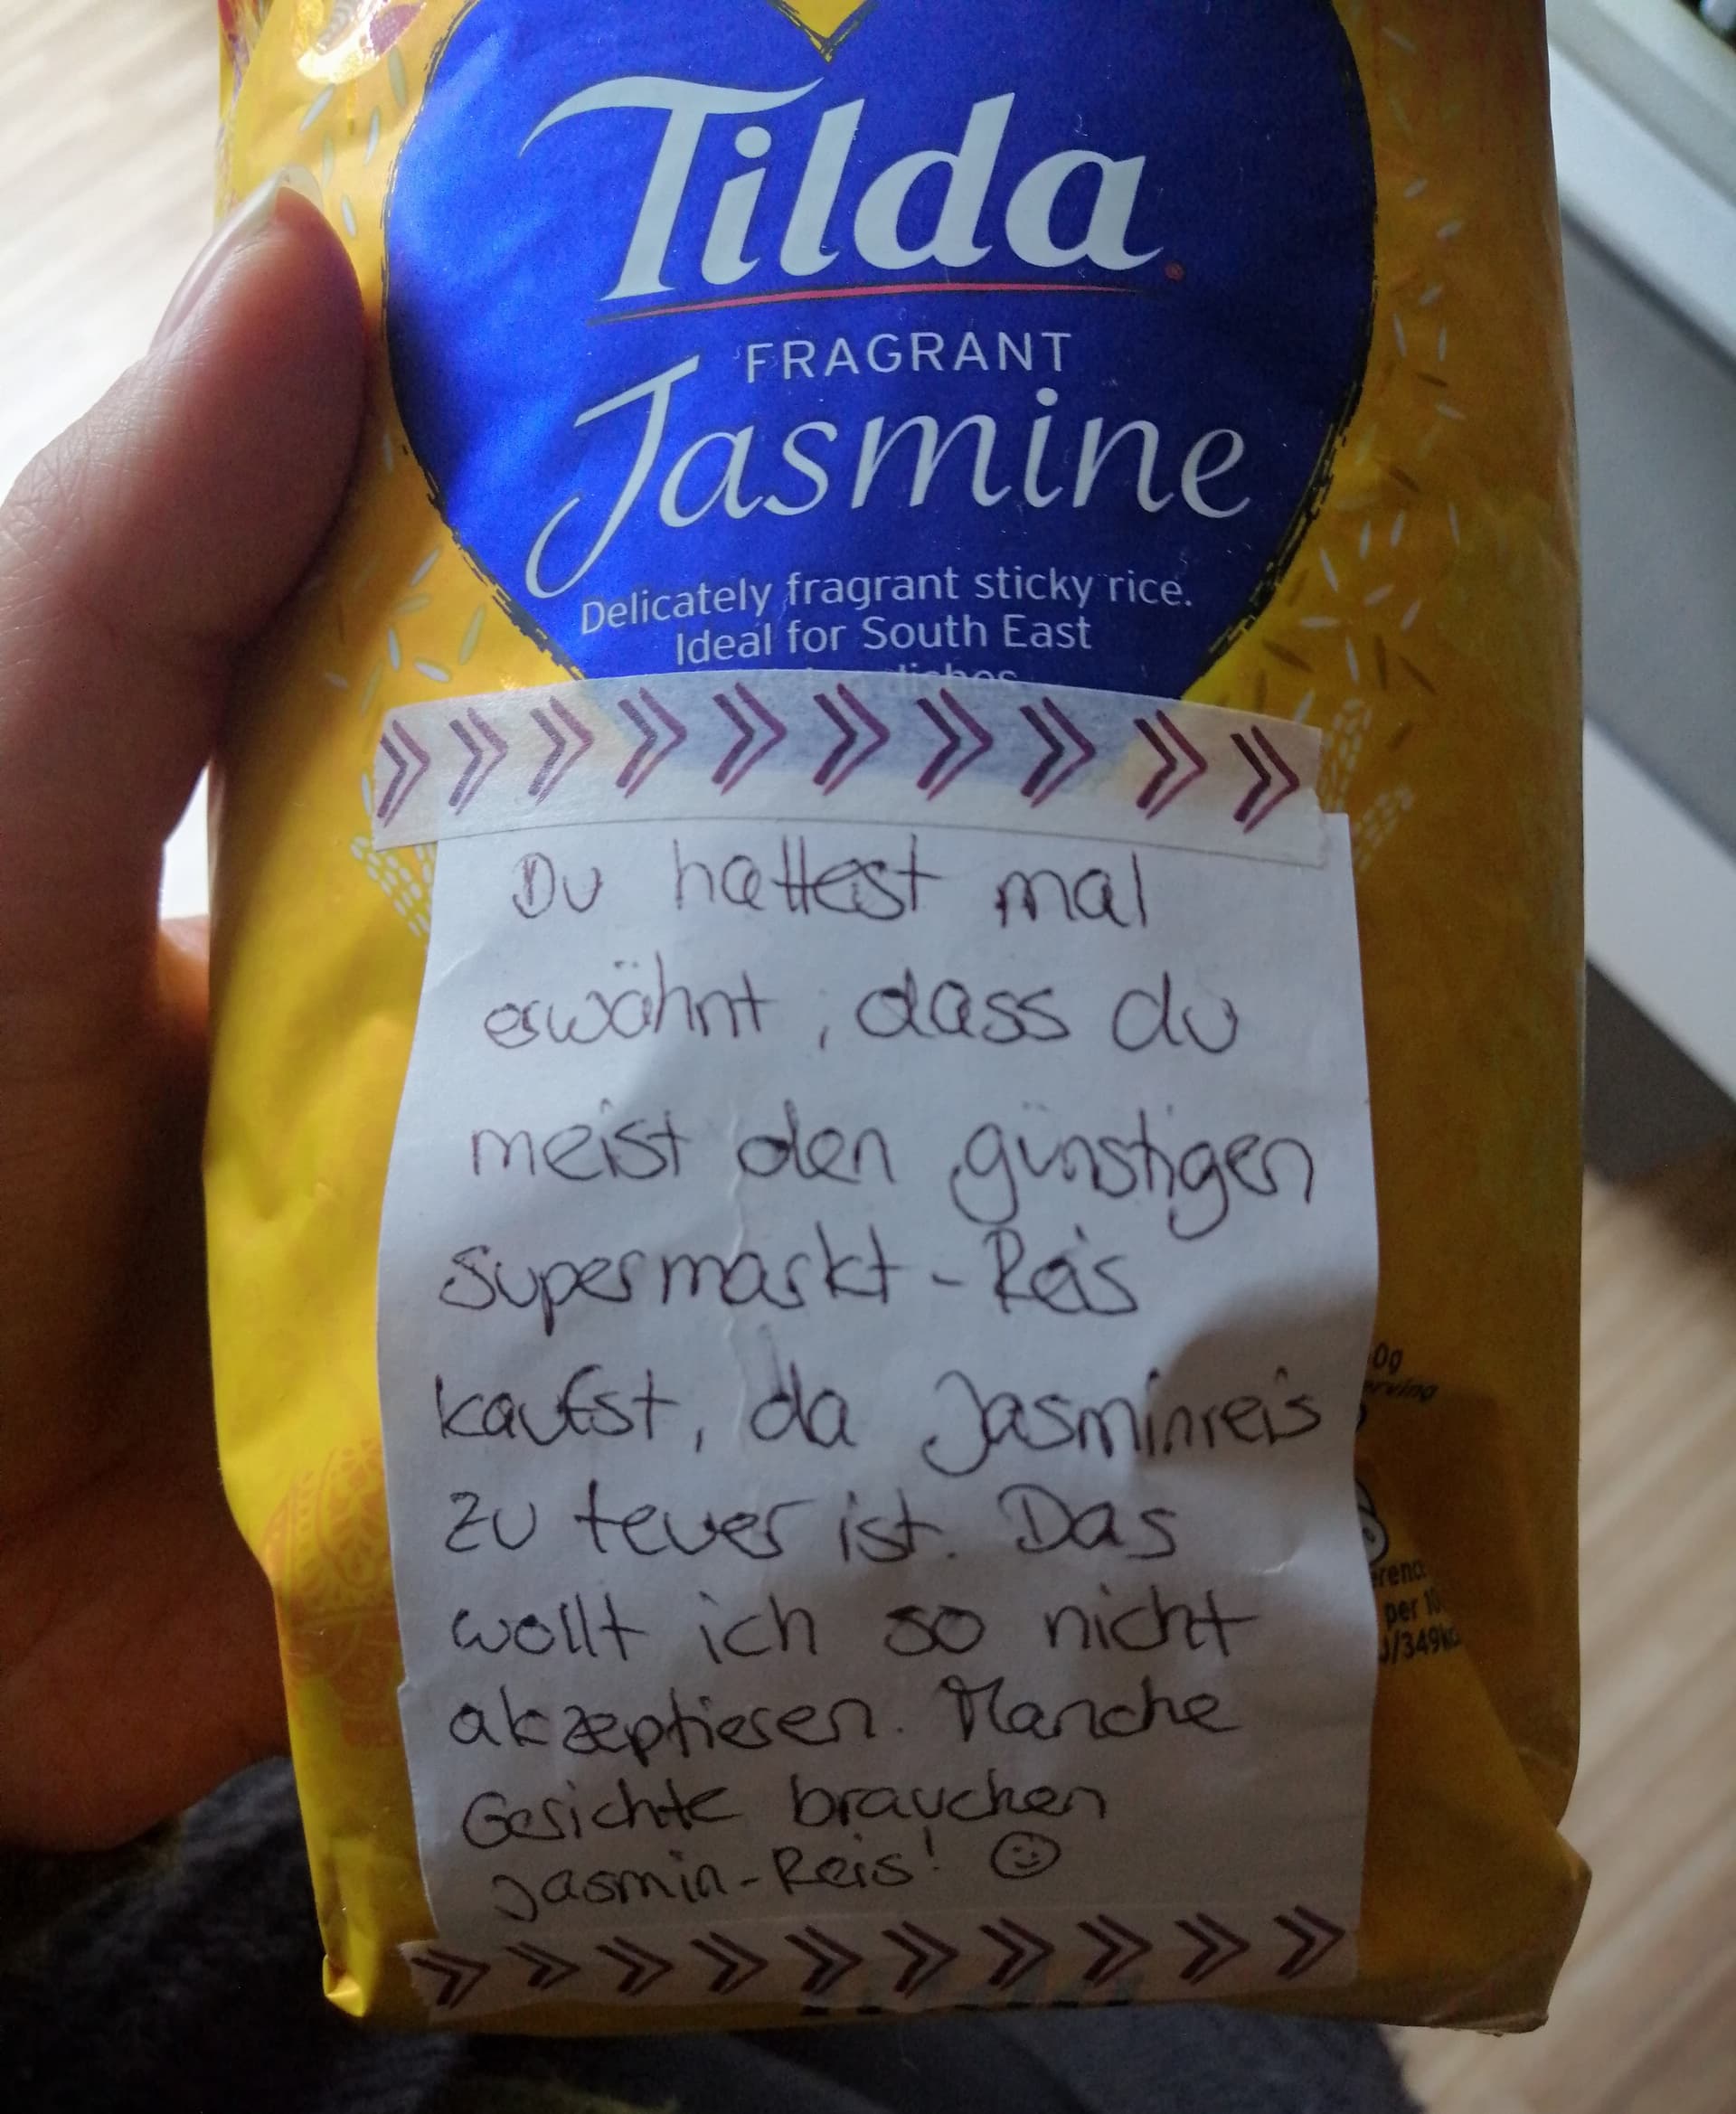 Tilda
FRAGRANT
Jasmine
Delicately fragrant sticky rice.
Ideal for South East
dishes
Du hattest mal
erwähnt, dass du
meist den günstigen
Supermarkt-Reis
kaufst, da Jasminreis
zu teuer ist. Das
wollt ich so nicht
akzeptieren. Manche
Gerichte brauchen
Jasmin-Reis! ☺
per